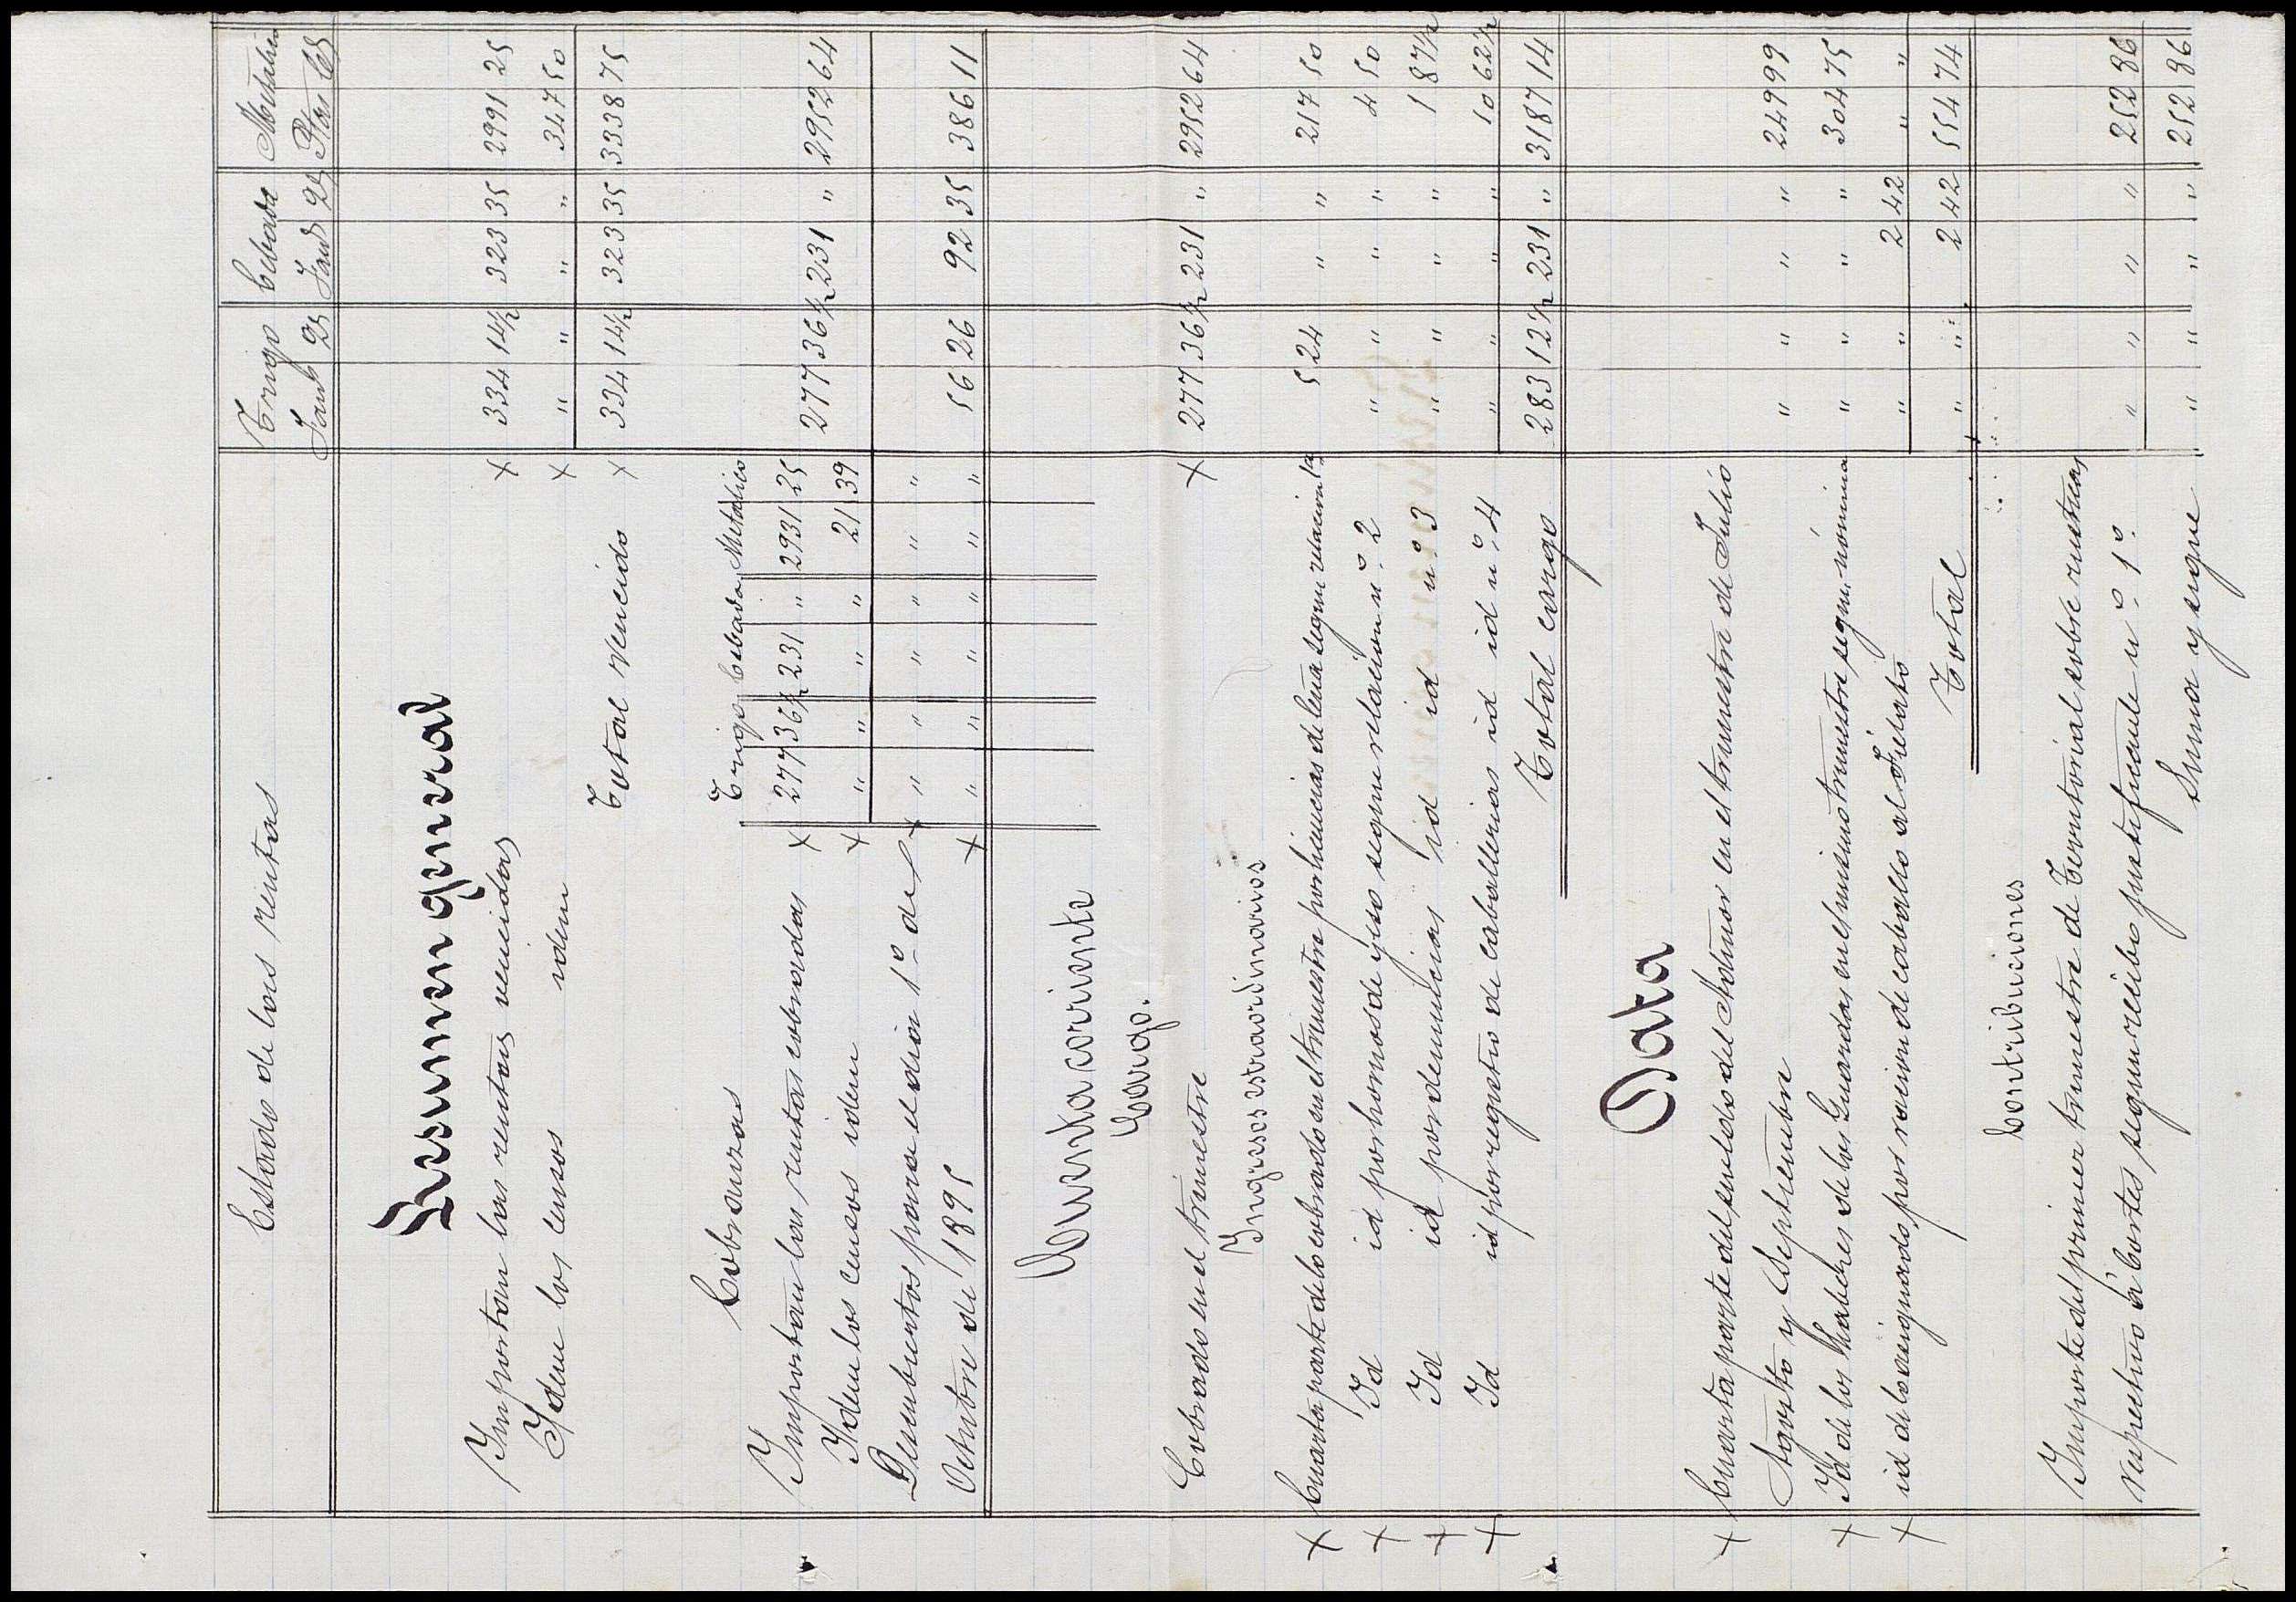 Estado de las rentas Trigo Cebada Metálico
Fans Qs Fans Qs Ptas Cs
Resumen general
Importan las rentas vencidas × 334 14½ 323 35 2991 25
Idem los censos idem × " " " " 347 50
Total vencido × 334 14½ 323 35 3338 75
Cobranzas Trigo Cebada Metalico
Importan las rentas cobradas × 277 36½ 231 " 2931 25 277 36½ 231 " 2952 64
Idem los censos idem × " " " " 21 39
Descubiertos para el dia 1º de × " " " " " "
Octubre de 1895 × " " " " " " 56 26 92 35 386 11
Cuenta corriente
Cargo.
Cobrado en el trimestre × 277 36½ 231 " 2952 64
Ingresos estraordinarios
× Cuarta parte de lo cobrado en el trimestre por licencias de leña segun relacion 1ª 5 24 " " 217 50
× Id id por hornos de yeso segun relacion nº. 2 " " " " 4 50
× Id id por denuncias id id nº 3 " " " " 1 87½
× Id id por registro de caballerias id id nº. 4 " " " " 10 62½
Total cargo 283 12½ 231 " 3187 14
Data
× Cuarta parte del sueldo del Admor en el trimestre de Julio
Agosto y Septiembre " " " " 249 99
× Id de los haberes de los Guardas en el mismo trimestre segun nómina " " " " 304 75
× id de lo asignado por racion de caballo al Fielato " " 2 42 " "
Total " " 2 42 554 74
Contribuciones
Importe del primer trimestre de Territorial sobre rusticas
respectivo á Cortes segun recibo justificante nº. 1º. " " " " 252 86
Suma y sigue " " " " 252 86